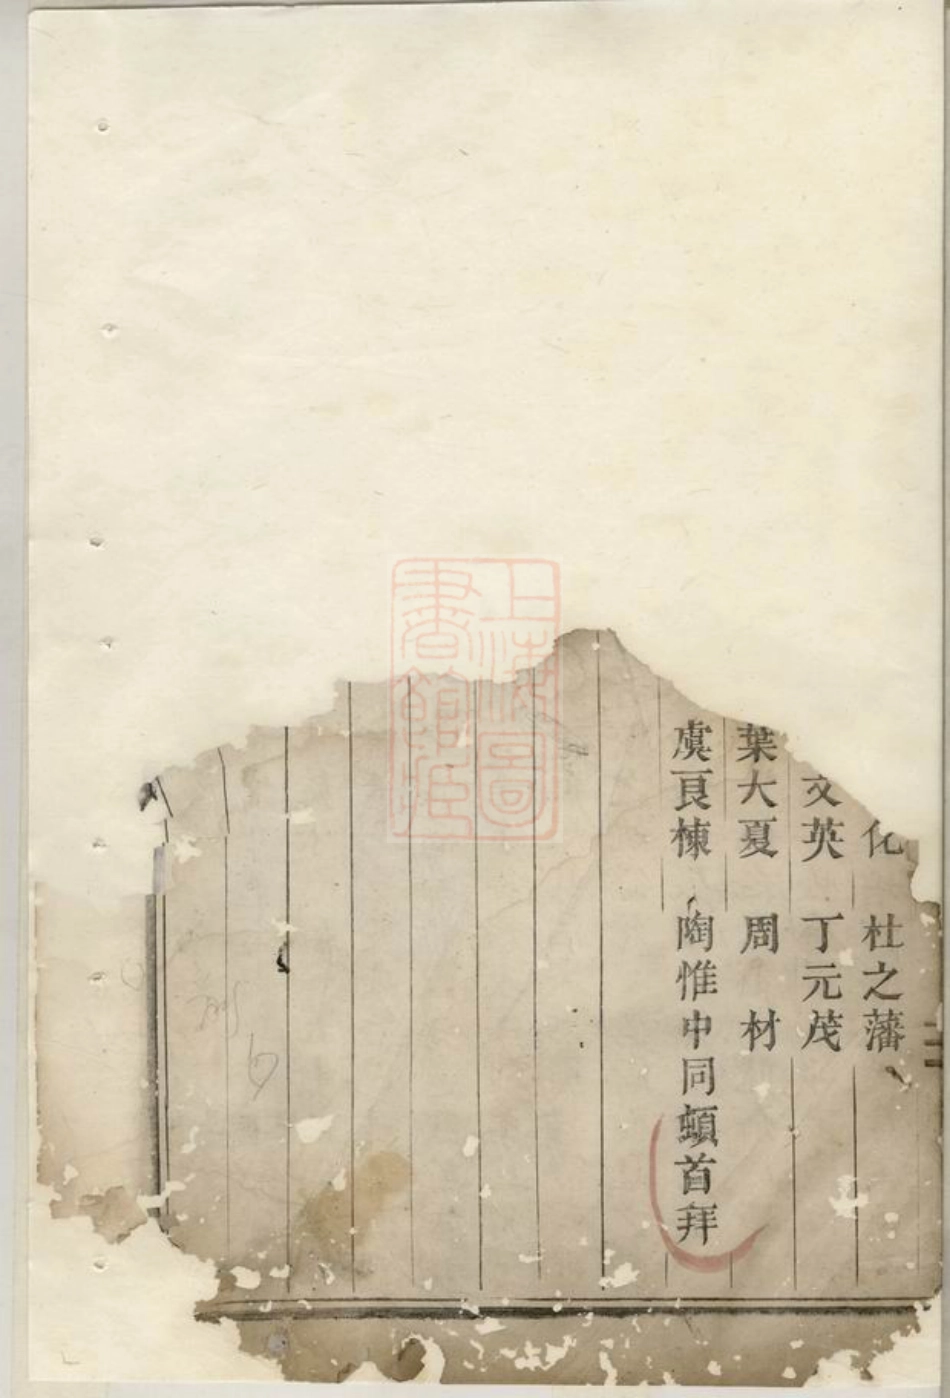 化　杜之藩
文英　丁元茂
葉大夏　周　材
虞良棟　陶惟中同頓首拜
上海圖
書館藏